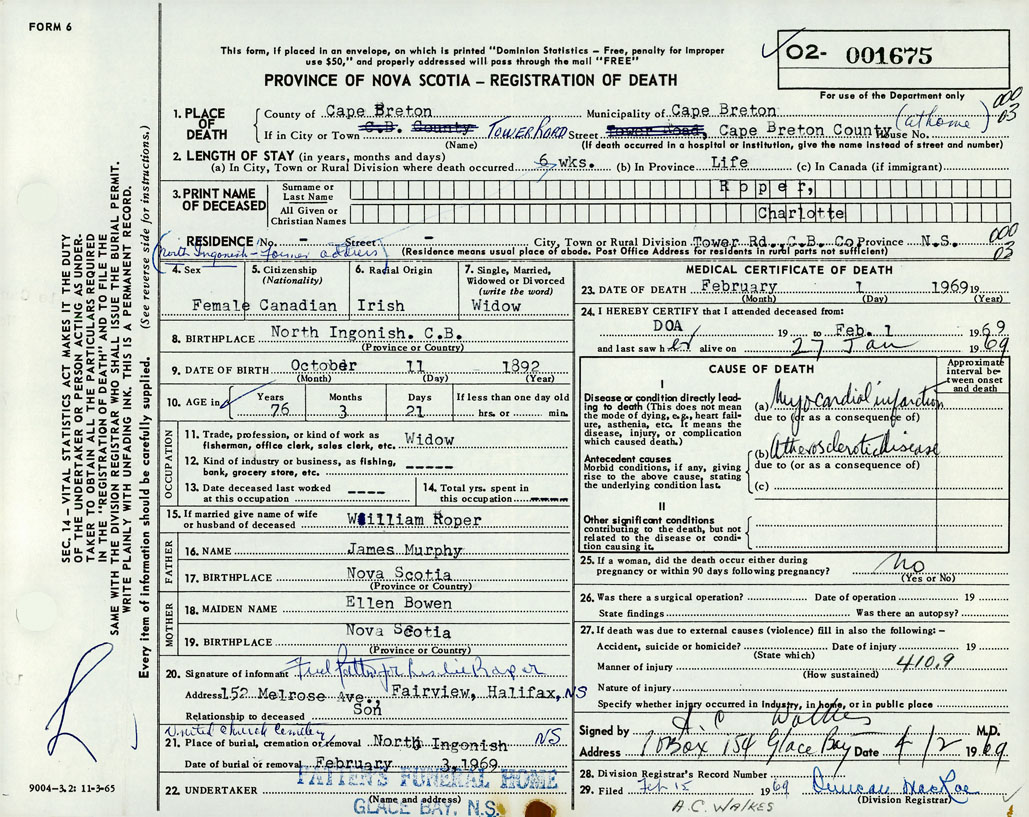 FORM 6
This form, if placed in an envelope, on which is printed "Dominion Statistics – Free, penalty for improper
use $50," and properly addressed will pass through the mail "FREE"
PROVINCE OF NOVA SCOTIA – REGISTRATION OF DEATH
02- 001675
For use of the Department only
1. PLACE OF DEATH
County of Cape Breton Municipality of Cape Breton
000
03
If in City or Town C.B. County Tower Road Street Tower Road, Cape Breton County House No. (at home)
(Name) (If death occurred in a hospital or institution, give the name instead of street and number)
2. LENGTH OF STAY (in years, months and days)
(a) In City, Town or Rural Division where death occurred 6 wks. (b) In Province Life (c) In Canada (if immigrant)
3. PRINT NAME OF DECEASED
Surname or Last Name Roper,
All Given or Christian Names Charlotte
RESIDENCE No. - Street - City, Town or Rural Division Tower Rd. C.B. Co Province N.S.
000
03
(North Ingonish - Former address) (Residence means usual place of abode. Post Office Address for residents in rural parts not sufficient)
4. Sex
Female
5. Citizenship
(Nationality)
Canadian
6. Racial Origin
Irish
7. Single, Married,
Widowed or Divorced
(write the word)
Widow
8. BIRTHPLACE North Ingonish. C.B.
(Province or Country)
9. DATE OF BIRTH October 11 1892
(Month) (Day) (Year)
10. AGE in
Years Months Days If less than one day old
76 3 21 hrs. or min.
OCCUPATION
11. Trade, profession, or kind of work as
fisherman, office clerk, sales clerk, etc. Widow
12. Kind of industry or business, as fishing,
bank, grocery store, etc. -----
13. Date deceased last worked
at this occupation ----
14. Total yrs. spent in
this occupation ----
15. If married give name of wife
or husband of deceased William Roper
FATHER
16. NAME James Murphy
17. BIRTHPLACE Nova Scotia
(Province or Country)
MOTHER
18. MAIDEN NAME Ellen Bowen
19. BIRTHPLACE Nova Scotia
(Province or Country)
20. Signature of informant Leslie Roper
Address 152 Melrose Ave., Fairview, Halifax, NS
Relationship to deceased Son
United Church Cemetery
21. Place of burial, cremation or removal North Ingonish NS
Date of burial or removal February 3, 1969
22. UNDERTAKER PATTEN'S FUNERAL HOME
(Name and address)
GLACE BAY, N.S.
9004–3.2: 11-3-65
MEDICAL CERTIFICATE OF DEATH
23. DATE OF DEATH February 1 1969 19
(Month) (Day) (Year)
24. I HEREBY CERTIFY that I attended deceased from:
DOA 19 to Feb. 1 1969
and last saw her alive on 27 Jan 1969
CAUSE OF DEATH
Approximate interval between onset and death
I
Disease or condition directly leading to death (This does not mean the mode of dying, e.g., heart failure, asthenia, etc. It means the disease, injury, or complication which caused death.)
(a) Myocardial infarction
due to (or as a consequence of)
Antecedent causes
Morbid conditions, if any, giving rise to the above cause, stating the underlying condition last.
(b) Atherosclerotic disease
due to (or as a consequence of)
(c)
II
Other significant conditions
contributing to the death, but not related to the disease or condition causing it.
25. If a woman, did the death occur either during
pregnancy or within 90 days following pregnancy? No
(Yes or No)
26. Was there a surgical operation? Date of operation 19
State findings Was there an autopsy?
27. If death was due to external causes (violence) fill in also the following: –
Accident, suicide or homicide? Date of injury 19
(State which)
Manner of injury 410.9
(How sustained)
Nature of injury
Specify whether injury occurred in industry, in home, or in public place
Signed by A. C. Walkes M.D.
Address PO Box 154 Glace Bay Date 4/2 1969
28. Division Registrar's Record Number
29. Filed Feb 15 1969 Duncan MacRae
(Division Registrar)
A.C. WALKES
SEC. 14 – VITAL STATISTICS ACT MAKES IT THE DUTY
OF THE UNDERTAKER OR PERSON ACTING AS UNDER-
TAKER TO OBTAIN ALL THE PARTICULARS REQUIRED
IN THE "REGISTRATION OF DEATH" AND TO FILE THE
SAME WITH THE DIVISION REGISTRAR WHO SHALL ISSUE THE BURIAL PERMIT.
WRITE PLAINLY WITH UNFADING INK. THIS IS A PERMANENT RECORD.
Every item of information should be carefully supplied. (See reverse side for instructions.)